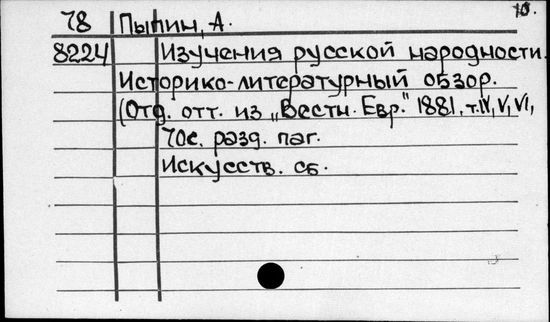 78 Пыпин, А.
8224 Изучения русской народности.
Историко-литературный обзор.
(Отд. отт. из „Вестн. Евр." 1881, т. IV, V, VI,
70с. разд. паг.
Искусств. сб.